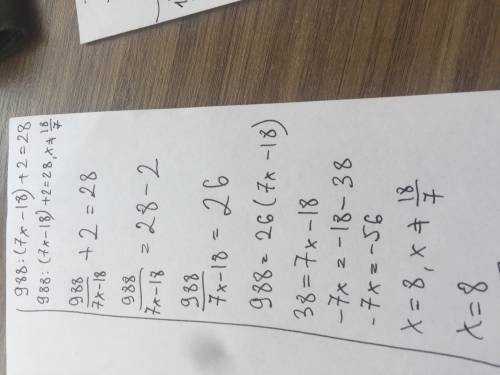 988:(7x-18)+2=28
988:(7x-18)+2=28, x≠18/7
988/7x-18 +2=28
988/7x-18 =28-2
988/7x-18 =26
988=26(7x-18)
38=7x-18
-7x=-18-38
-7x=-56
x=8, x≠18/7
x=8